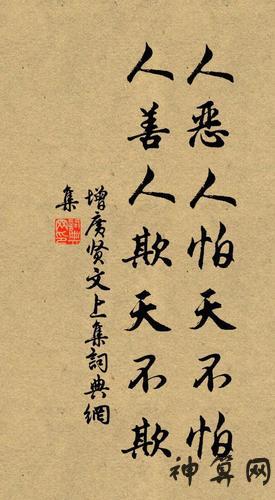 人恶人怕天不怕
人善人欺天不欺
增廣贤文上集詞典網
集
神算网